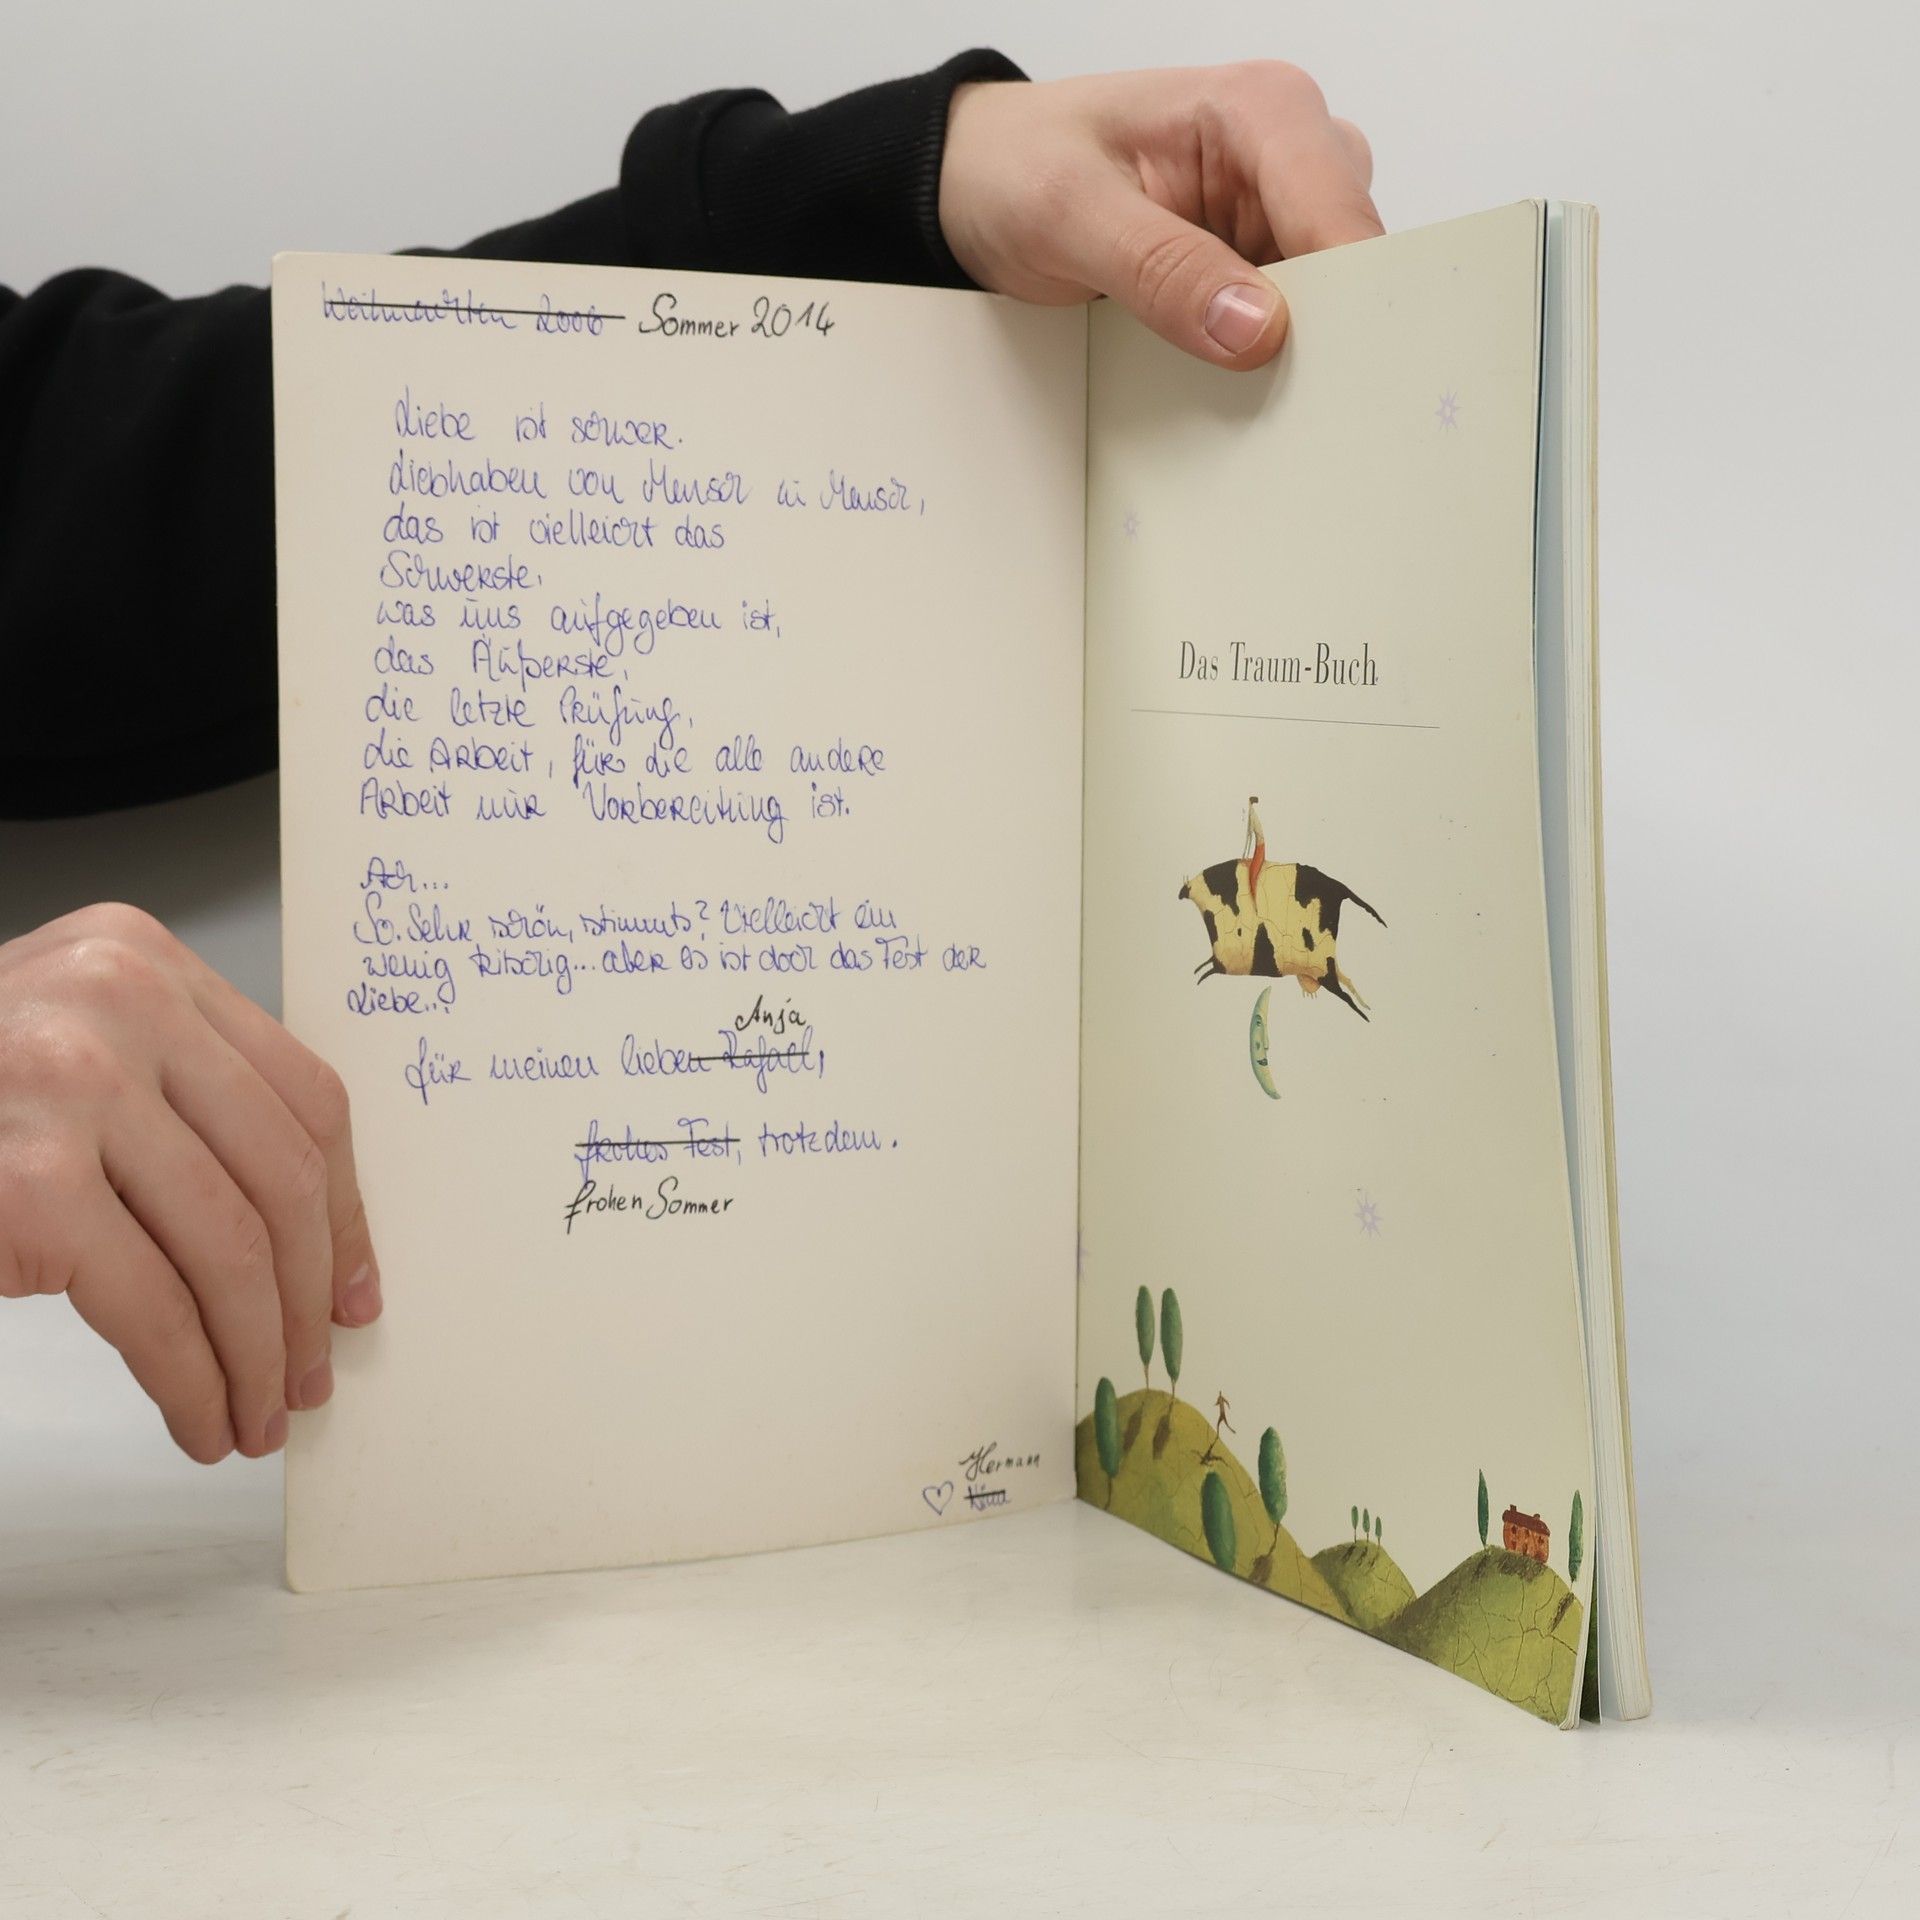 Weihnachten 2006 Sommer 2014
Liebe ist schwer.
Liebhaben von Mensch zu Mensch,
das ist vielleicht das
Schwerste,
was uns aufgegeben ist,
das Äußerste,
die letzte Prüfung,
die Arbeit, für die alle andere
Arbeit nur Vorbereitung ist.
Ach...
So. Sehr schön, stimmts? Vielleicht ein
wenig kitschig... aber es ist doch das Fest der
Liebe...
Anja
für meinen lieben Rafael,
frohes Fest, trotzdem.
frohen Sommer
Hermann
♡ Nina
Das Traum-Buch